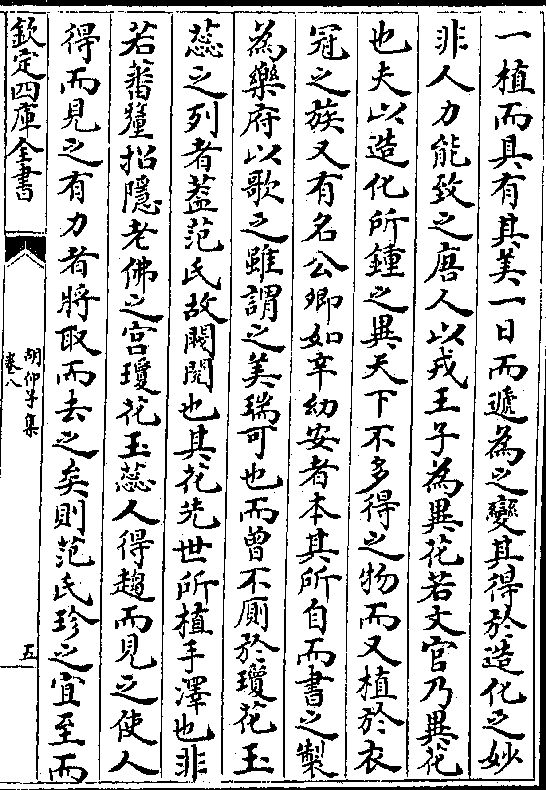 一植而具有其美一日而遞為之變其得於造化之妙
非人力能致之唐人以戎王子為異花若文官乃異花
也夫以造化所鍾之異天下不多得之物而又植於衣
冠之族又有名公卿如辛幼安者本其所自而書之製
為樂府以歌之雖謂之美瑞可也而曾不厠於瓊花玉
蕊之列者葢范氏故閥閱也其花先世所植手澤也非
若蕃釐招隱老佛之宫瓊花玉蕊人得趨而見之使人
得而見之有力者將取而去之矣則范氏珍之宜至而
欽定四庫全書
胡仲子集
卷八
五